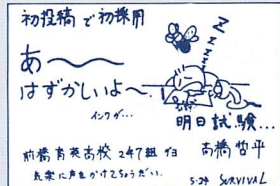 初投稿で初採用
あ〜
はずかしいよ〜
インクが…
明日試験…
前橋育英高校 247組
高橋哲平
気楽に声をかけてちょうだい.
5.24 SURVIVAL